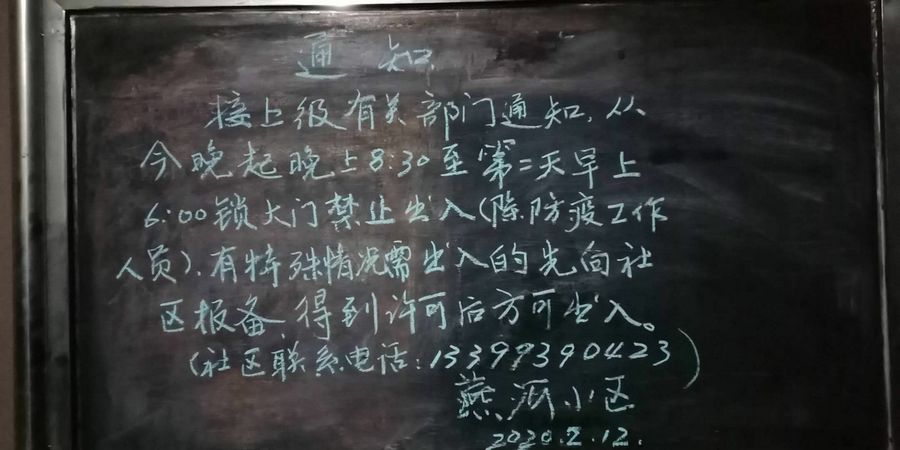 通知
接上级有关部门通知,从
今晚起晚上8:30至第二天早上
6:00锁大门禁止出入(除防疫工作
人员),有特殊情况需出入的先向社
区报备,得到许可后方可出入。
(社区联系电话:13399390423)
燕河小区
2020.2.12.